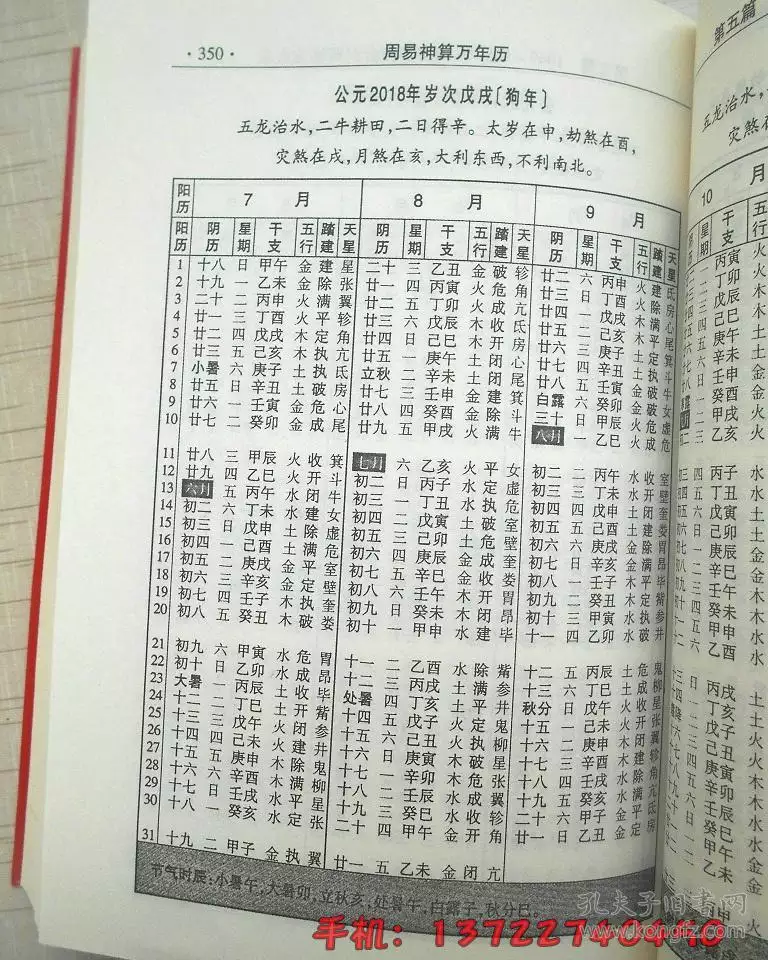 ·350· 周易神算万年历
公元2018年岁次戊戌〔狗年〕
五龙治水,二牛耕田,二日得辛。太岁在申,劫煞在酉,
灾煞在戌,月煞在亥,大利东西,不利南北。
阳历 7 月 8 月 9 月
阳历 阴历 星期 干支 五行 躔建 天星 阴历 星期 干支 五行 躔建 天星 阴历 星期 干支 五行 躔建 天星
1 十八 日 甲午 金 建 星 二十 三 乙丑 金 破 轸 廿二 六 丙申 火 建 氐
2 十九 一 乙未 金 除 张 廿一 四 丙寅 火 危 角 廿三 日 丁酉 火 除 房
3 二十 二 丙申 火 满 翼 廿二 五 丁卯 火 成 亢 廿四 一 戊戌 木 满 心
4 廿一 三 丁酉 火 平 轸 廿三 六 戊辰 木 收 氐 廿五 二 己亥 木 平 尾
5 廿二 四 戊戌 木 定 角 廿四 日 己巳 木 开 房 廿六 三 庚子 土 定 箕
6 廿三 五 己亥 木 执 亢 廿五 一 庚午 土 闭 心 廿七 四 辛丑 土 执 斗
7 小暑 六 庚子 土 执 氐 立秋 二 辛未 土 闭 尾 廿八 五 壬寅 金 破 牛
8 廿五 日 辛丑 土 破 房 廿七 三 壬申 金 建 箕 白露 六 癸卯 金 破 女
9 廿六 一 壬寅 金 危 心 廿八 四 癸酉 金 除 斗 三十 日 甲辰 火 危 虚
10 廿七 二 癸卯 金 成 尾 廿九 五 甲戌 火 满 牛 八月 一 乙巳 火 成 危
11 廿八 三 甲辰 火 收 箕 七月 六 乙亥 火 平 女 初二 二 丙午 水 收 室
12 廿九 四 乙巳 火 开 斗 初二 日 丙子 水 定 虚 初三 三 丁未 水 开 壁
13 六月 五 丙午 水 闭 牛 初三 一 丁丑 水 执 危 初四 四 戊申 土 闭 奎
14 初二 六 丁未 水 建 女 初四 二 戊寅 土 破 室 初五 五 己酉 土 建 娄
15 初三 日 戊申 土 除 虚 初五 三 己卯 土 危 壁 初六 六 庚戌 金 除 胃
16 初四 一 己酉 土 满 危 初六 四 庚辰 金 成 奎 初七 日 辛亥 金 满 昴
17 初五 二 庚戌 金 平 室 初七 五 辛巳 金 收 娄 初八 一 壬子 木 平 毕
18 初六 三 辛亥 金 定 壁 初八 六 壬午 木 开 胃 初九 二 癸丑 木 定 紫
19 初七 四 壬子 木 执 奎 初九 日 癸未 木 闭 昴 初十 三 甲寅 水 执 参
20 初八 五 癸丑 木 破 娄 初十 一 甲申 水 建 毕 十一 四 乙卯 水 破 井
21 初九 六 甲寅 水 危 胃 十一 二 乙酉 水 除 紫 十二 五 丙辰 土 危 鬼
22 初十 日 乙卯 水 成 昴 十二 三 丙戌 土 满 参 十三 六 丁巳 土 成 柳
23 大暑 一 丙辰 土 收 毕 处暑 四 丁亥 土 平 井 秋分 日 戊午 火 收 星
24 十二 二 丁巳 土 开 紫 十四 五 戊子 火 定 鬼 十五 一 己未 火 开 张
25 十三 三 戊午 火 闭 参 十五 六 己丑 火 执 柳 十六 二 庚申 木 闭 翼
26 十四 四 己未 火 建 井 十六 日 庚寅 木 破 星 十七 三 辛酉 木 建 轸
27 十五 五 庚申 木 除 鬼 十七 一 辛卯 木 危 张 十八 四 壬戌 水 除 角
28 十六 六 辛酉 木 满 柳 十八 二 壬辰 水 成 翼 十九 五 癸亥 水 满 亢
29 十七 日 壬戌 水 平 星 十九 三 癸巳 水 收 轸 二十 六 甲子 金 平 氐
30 十八 一 癸亥 水 定 张 二十 四 甲午 金 开 角 廿一 日 乙丑 金 定 房
31 十九 二 甲子 金 执 翼 廿一 五 乙未 金 闭 亢
节气时辰:小暑午,大暑卯,立秋亥;处暑午,白露子,秋分巳。
第五篇
五龙治水,
灾煞在
10 月
孔夫子旧书网
手机：13722740440